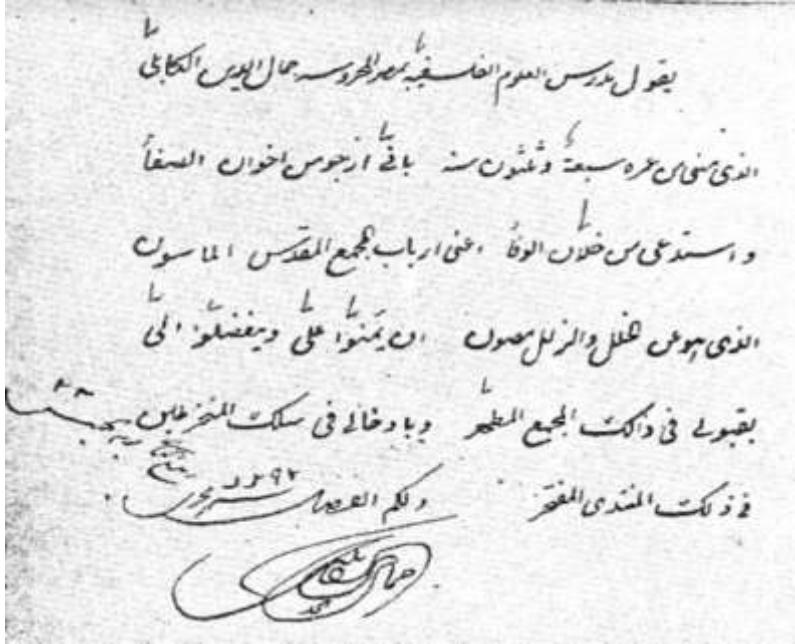 يقول مدرس العلوم الفلسفية بمصر المحروسة جمال الدين الكابلي
الذى مضى من عمره سبعة وثلثون سنة بانّى ارجو من اخوان الصفأ
واستدعى من خلّان الوفأ اعنى ارباب المجمع المقدّس الماسون
الذى هو عن الخلل والزلل مصون ان يمنّوا علىّ ويتفضلّوا الىّ
بقبولى فى ذالك المجمع المطهّر وبادخالى فى سلك المنخرطين
فى ذلك المنتدى المفتخر ولكم الفضل
١٢٩٢
جمال الدين